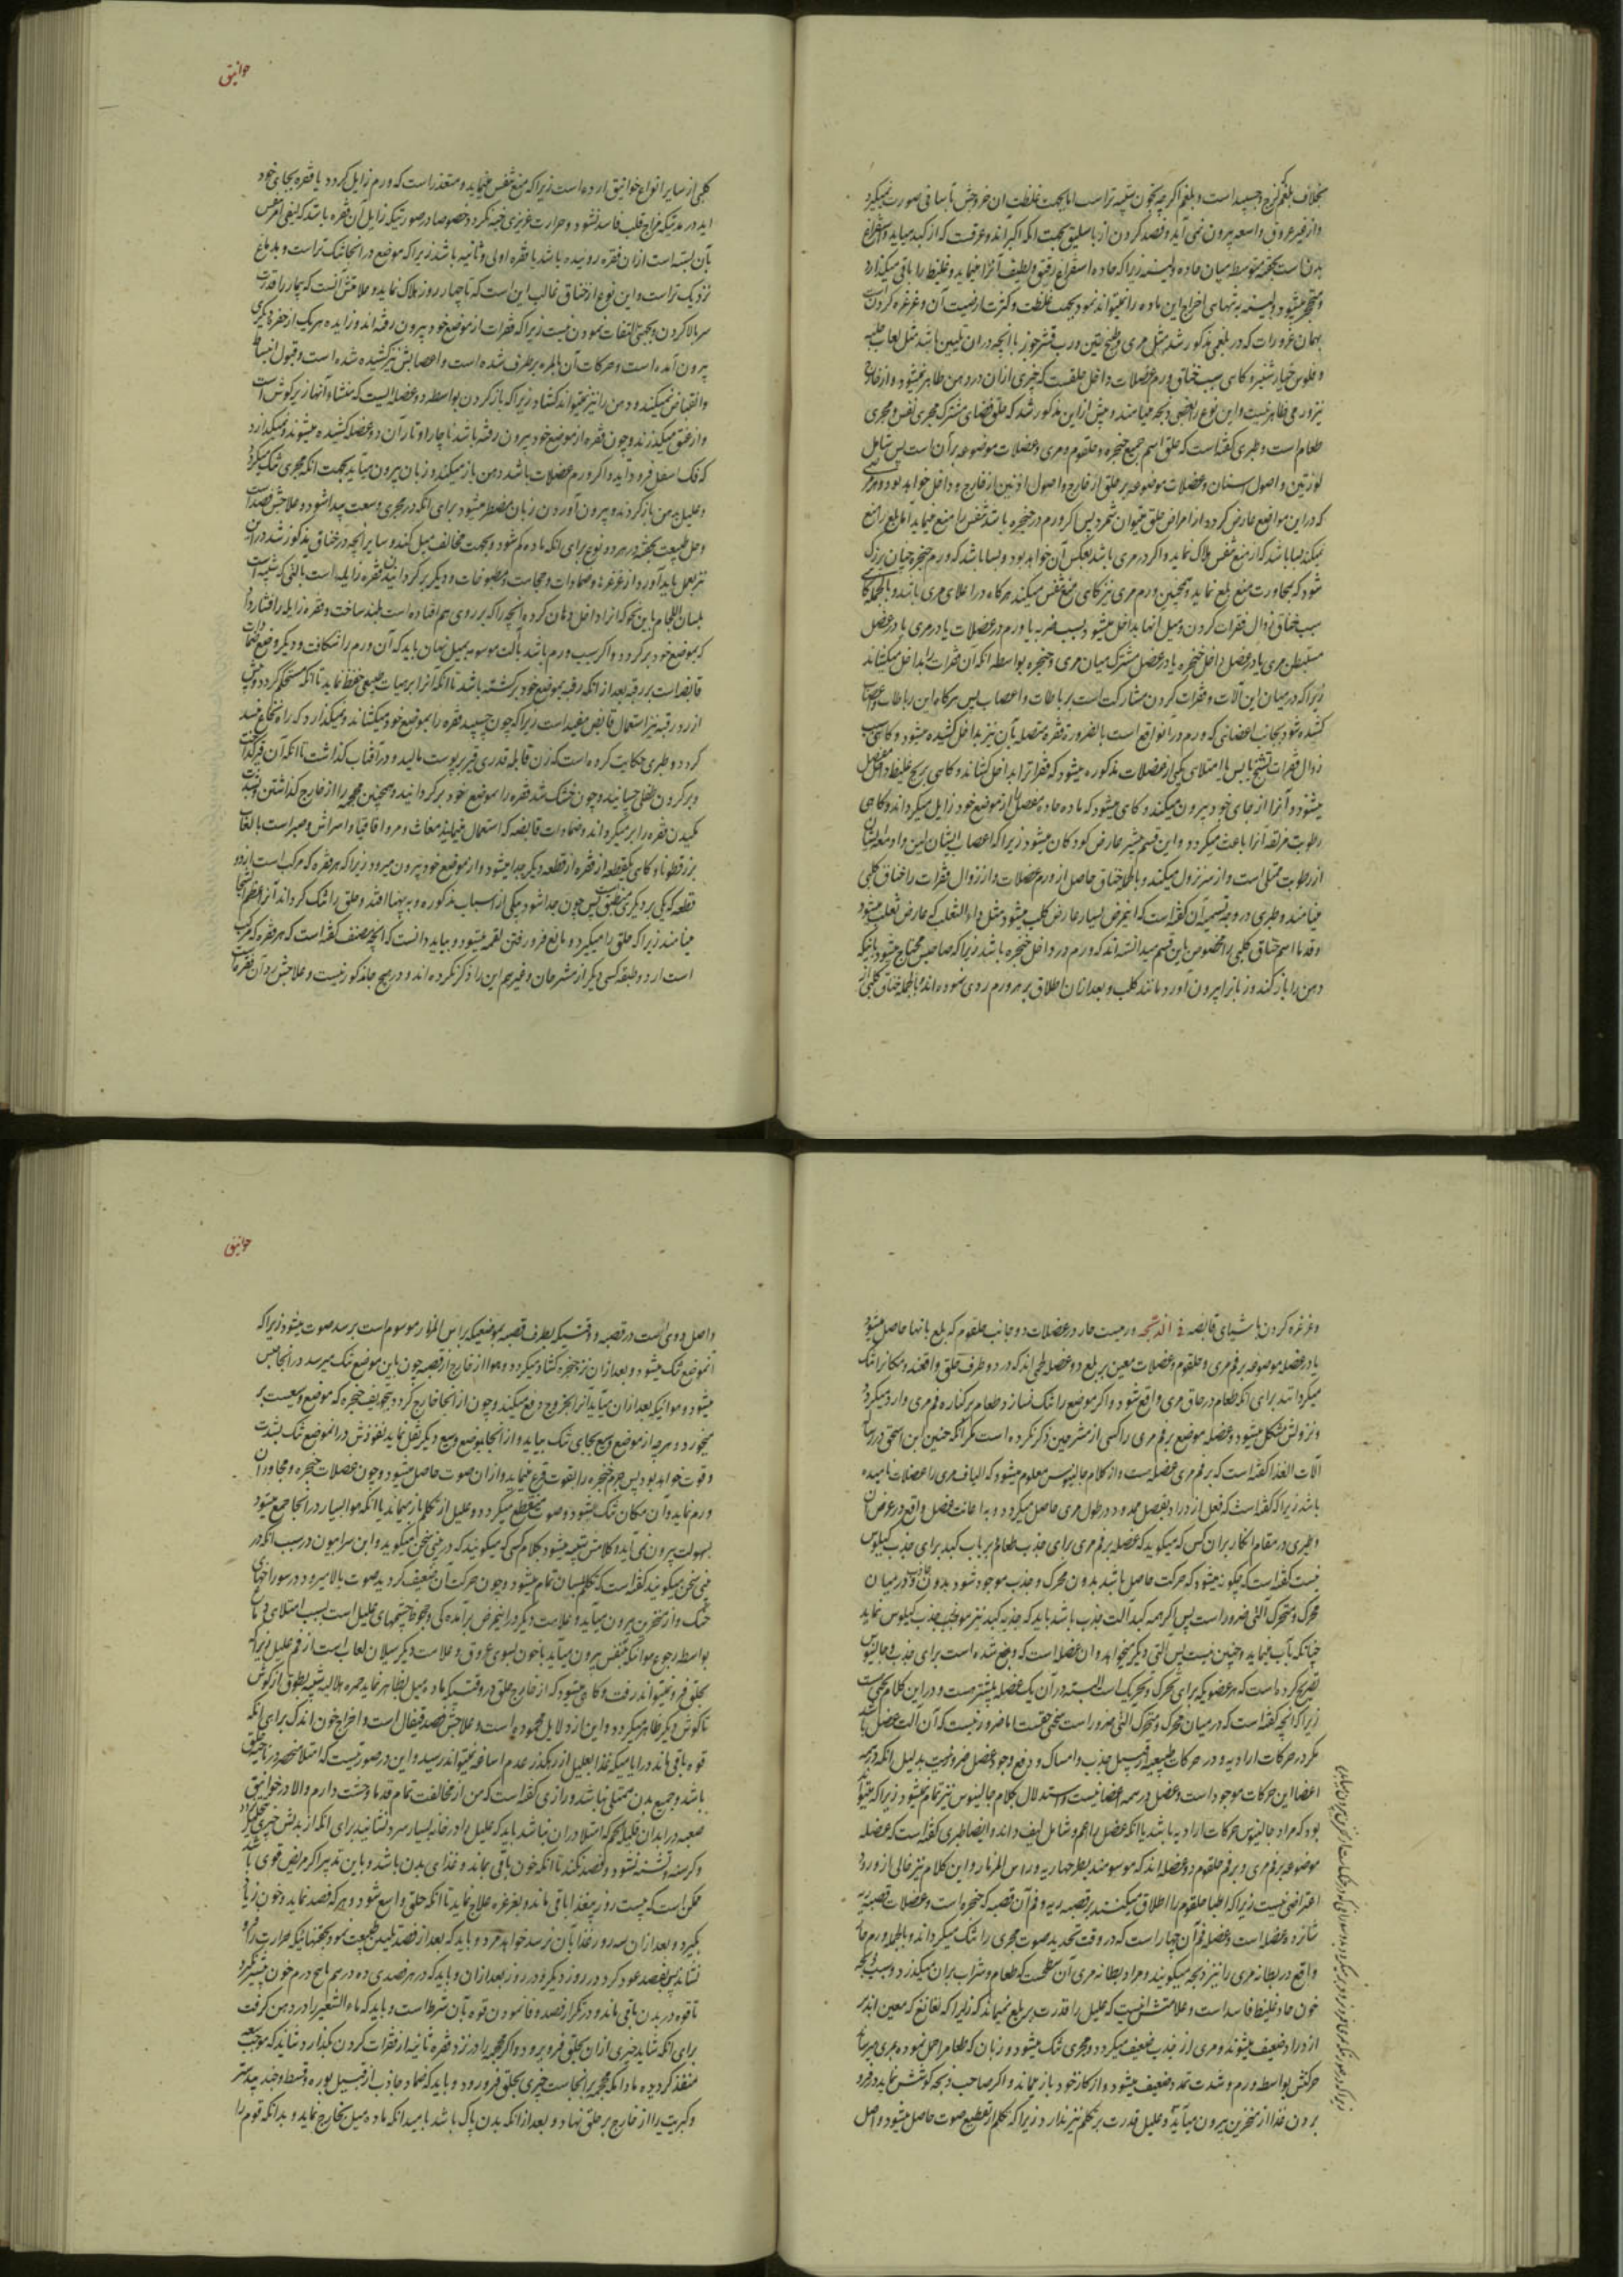 خوانیق
بخلاف بلغم لزج و چسپیده است و بلغم اگرچه بخون شبیه‌تر است اما بجهت غلظت آن خروجش بآسانی صورت نمیگیرد
و از غیر عروق واسعه بیرون نمی‌آید و فصد کردن از باسلیق بجهت آنکه اکبر اند
بدن است بحقنه متوسطه میان حاده و لینه زیرا که حاده استفراغ رقیق و لطیف آنرا مینماید و غلیظ را باقی میگذارد
و متحجر میشود و لینه به تنهایی اخراج این ماده را نمیتواند نمود بجهت غلظت و کثرت ارضیت آن و غرغره کردن
بهمان غرورات که در بلغمی مذکور شد مثل مری و طبیخ تین و رب قشر جوز با آنچه در آن تلیین باشد مثل لعاب حلبه
و فلوس خیارشنبر و گاهی سبب خناق ورم عضلات داخل حلقست که چیزی از آن در دهن ظاهر نمیشود و از خارج
نیز ورمی ظاهر نیست و این نوع را بعضی ذبحه مینامند و پیش ازین مذکور شد که حلق فضای مشترک مجری نفس و مجری
طعام است و طبری گفته است که حلق اسم جمیع حنجره و حلقوم و مری و عضلات موضوعه بر آن است پس شامل
لوزتین و اصول اسنان و عضلات موضوعه بر حلق از خارج و اصول اذنین از خارج و داخل خواهد بود و هر مرضی
که در این مواضع عارض گردد از امراض حلق میتوان شمرد پس اگر ورم در حنجره باشد تنفس را منع مینماید اما بلع را منع
نمیکند بسا باشد که از منع تنفس هلاک نماید و اگر در مری باشد بعکس آن خواهد بود و بسا باشد که ورم حنجره چنان بزرگ
شود که بمجاورت منع بلع نماید و همچنین ورم مری نیز گاهی منع تنفس میکند هرگاه در اعلای مری باشد و بالجمله گاهی
سبب خناق زوال فقرات گردن و میل آنها بداخل میشود بسبب ضربه یا ورم در عضلات یا در مری یا در عضل
مستبطن مری یا در عضل داخل حنجره یا در عضل مشترک میان مری و حنجره بواسطه آنکه آن فقرات را بداخل میکشاند
زیرا که در میان این آلات و فقرات گردن مشارکت است برباطات و اعصاب پس هرگاه این رباطات و اعصاب
کشیده شود بجانب اعضائی که ورم در آنها واقع است بالضروره فقره متصله بآن نیز بداخل کشیده میشود و گاهی سبب
زوال فقرات تشنج یابس یا امتلائی یکی از عضلات مذکوره میشود که فقرا ترا بداخل کشاند و گاهی ریح غلیظ داخل مفصل
میشود و آنرا از جای خود بیرون میکند و گاهی میشود که ماده حاده مفصل را از موضع خود زایل میگرداند و گاهی
رطوبت مزلقه آنرا باعث میگردد و این قسم بیشتر عارض کودکان میشود زیرا که اعصاب ایشان لین و اوعیه ایشان
از رطوبت ممتلی است و از سر نزول میکند و بالجمله خناق حاصل از ورم عضلات و از زوال فقرات را خناق کلبی
مینامند و طبری در وجه تسمیه آن گفته است که این مرض بسیار عارض کلب میشود مثل داء الثعلب که عارض ثعلب میشود
و قدما اسم خناق کلبی را مخصوص باین قسم میدانسته‌اند که ورم در داخل حنجره باشد زیرا که صاحبش محتاج میشود بآنکه
دهن را باز کند و زبانرا بیرون آورد مانند کلب و بعد از آن اطلاق بر هر ورم ردی نموده‌اند و بالجمله خناق کلبی از
کلبی از سایر انواع خوانیق ارده است زیرا که منع تنفس مینماید و متعذر است که ورم زایل گردد یا فقره بجای خود
آید در مدتیکه مزاج قلب فاسد نشود و حرارت غریزی خفه نگردد خصوصا در صورتیکه زایل آن فقره باشد که
بآن بسته است از آن فقره رونیده باشد یا فقره اولی و ثانیه باشد زیرا که موضع در آنجا تنگ‌تر است و بدماغ
نزدیک‌تر است و این نوع از خناق غالب این است که تا چهار روز هلاک نماید و علامتش آنست که بیمار را قدرت
سر بالا کردن و بجهتی التفات نمودن نیست زیرا که فقرات از موضع خود بیرون رفته‌اند و زایده هر یک از حفره دیگری
بیرون آمده است و حرکات آن بالمره برطرف شده است و اعصابش نیز کشیده شده است و قبول انبساط
و انقباض نمیکنند و دهن را نیز نمیتواند گشاد زیرا که باز کردن بواسطه دو عضله‌ایست که منشاء آنها زیر گوش است
و از عنق میگذرند و چون فقره از موضع خود بیرون رفته باشد ناچار اوتار آن دو عضله کشیده میشوند و نمیگذارد
که فک اسفل فرود آید و اگر ورم عضلات باشد دهن باز میکند و زبان بیرون میآید بجهت آنکه مجری تنگ میگردد
و علیل بدهن باز کردن و بیرون آوردن زبان مضطر میشود برای آنکه در مجری وسعت پیدا شود و علاجش فصد است
و حل طبیعت بحقنه در هر دو نوع برای آنکه ماده کم شود و بجهت مخالف میل کند و سایر آنچه در خناق مذکور شد در این
نیز بعمل باید آورد از غرغره‌ها و ضمادات و حجامت و مطبوخات و دیگر برگردانیدن فقره زایله است بآلتی که شبیه است
بلسان اللجام باین نحو که آنرا داخل دهان کرده آنچه را که بر روی هم افتاده است بلند ساخت و فقره زایله را فشار داد
که بموضع خود برگردد و اگر سبب ورم باشد بآلت موسومه بمیل نهان باید که آن ورم را شکافت و دیگر وضع ضمادات
قابضه است بر رقبه بعد از آنکه رقبه بموضع خود برگشته باشد تا آنکه آنرا بر هیات طبیعی حفظ نماید تا آنکه مستحکم گردد و پیش
از رد رقبه نیز استعمال قابض مفید است زیرا که چون چسپید فقره را بموضع خود میکشاند و نمیگذارد که راه نخاع سد
گردد و طبری حکایت کرده است که زن قابله قدری قیر بر پوست مالید و در آفتاب گذاشت تا آنکه آن قیر گداخت
و بر گردن طفلی چسپانید و چون خشک شد فقره را بموضع خود برگردانید و همچنین محجمه را از خارج گذاشتن
مکیدن فقره را بر میگرداند و ضمادات قابضه که استعمال مینمایند مغاث و مر و اقاقیا و اسراش و صبر است با لعاب
بزرقطونا و گاهی یکقطعه از فقره از قطعه دیگر جدا میشود و از موضع خود بیرون میرود زیرا که هر فقره که مرکب است از دو
قطعه که یکی بر دیگری منطبق است پس چون جدا شود بیکی از اسباب مذکوره و به پهنا افتد و حلق را تنگ گرداند
مینامند زیرا که حلق را میگیرد و مانع فرو رفتن لقمه میشود و بباید دانست که آنچه مصنف گفته است که هر فقره که مرکب
است از دو طبقه کسی دیگر از مشرحان و غیرهم این را ذکر نکرده‌اند و در هیچ جا مذکور نیست و علاجش رد آن فقره
خوانیق
و غرغره کردن باشیای قابضه فی الذبحه ورمیست حار در عضلات دو جانب حلقوم که بلع بآنها حاصل میشود
یا در عضله موضوعه بر فم مری و حلقوم و عضلات معین بر بلع دو عضله‌اند که در دو طرف حلق واقعند و مکانرا تنگ
میگردانند برای آنکه طعام در حاق مری واقع شود و اگر موضع را تنگ نسازند طعام بر کنار فم مری وارد میگردد
و نزولش مشکل میشود و عضله موضع بر فم مری را کسی از مشرحین ذکر نکرده است مگر آنکه حنین ابن اسحق در رساله
آلات الغذا گفته است که بر فم مری عضله‌ایست و از کلام جالینوس معلوم میشود که الیاف مری را عضلات نامیده
باشد زیرا که گفته است که فعل ازدراد بعضل ممدود در طول مری حاصل میگردد و باعانت عضل واقع در عرض آن
و طبری در مقام انکار بر آن کس که میگوید که عضله بر فم مری برای جذب طعام بر باب کبد برای جذب کیلوس
نیست گفته است که چگونه میشود که حرکت حاصل باشد بدون محرک و جذب موجود شود بدون جاذب در میان
محرک و متحرک آلتی ضرور است پس اگر همه کبد آلت جذب باشد باید که جذبه کبد نیز موجب جذب کیلوس نماید
چنانکه بآب مینماید و چنین نیست پس آلتی دیگر میخواهد و آن عضله است که وضع شده است برای جذب و جالینوس
تصریح کرده است که هر عضویکه برای تحرک و تحریک است البته در آن یک عضله بیشتر هست و در این کلام بحثی است
زیرا که آنچه گفته است که در میان محرک و متحرک آلتی ضرور است سخنی حقست اما ضرور نیست که آن آلت عضل باشد
مگر در حرکات ارادیه و در حرکات طبیعیه از قبیل جذب و امساک و دفع وجود عضل ضرور نیست بدلیل آنکه در همه
اعضا این حرکات موجود است و عضل در همه اعضا نیست و استدلال بکلام جالینوس نیز تمام نمیشود زیرا که میتواند
بود که مراد جالینوس حرکات ارادیه باشد یا آنکه عضل را اعم و شامل لیف داند و ایضا طبری گفته است که عضله
موضوعه بر فم مری و بر فم حلقوم دو عضله‌اند که موسومند بطرجهاریه و راس المزمار و این کلام نیز خالی از ورود
اعتراض نیست زیرا که اطبا حلقوم را اطلاق میکنند بر قصبه ریه و فم آن قصبه که حنجره است و عضلات قصبه ریه
شانزده عضله است و عضله فم آن چهار است که در وقت تحدید صوت مجری را تنگ میگرداند و بالجمله ورم حار
واقع در بطانه مری را نیز ذبحه میگویند و مراد ببطانه مری آن سطحست که طعام و شراب بر آن میگذرد و سبب ذبحه
خون حاد غلیظ فاسد است و علامتش اینست که علیل را قدرت بر بلع نمیماند که زیرا که لغانغ که معین اند بر
ازدراد ضعیف میشوند و مری از جذب ضعیف میگردد و مجری تنگ میشود و زبان که طعام را حمل نموده بمری میرساند
حرکتش بواسطه ورم و شدت تمدد ضعیف میشود و از کار خود باز میماند و اگر صاحب ذبحه کوشش نماید در فرو
بردن غذا از منخرین بیرون میآید و علیل قدرت بر تکلم نیز ندارد زیرا که تکلم از تقطیع صوت حاصل میشود و اصل
و اصل دوی است در قصبه و وقتیکه بطرف قصبه بموضعیکه براس المزمار موسوم است برسد صوت میشود زیرا که
آنموضع تنگ میشود و بعد از آن نزد حنجره گشاد میگردد و هوا از خارج از قصبه چون باین موضع تنگ میرسد در آنجا حبس
میشود و هوائیکه بعد از آن میآید آنرا بخروج دفع میکند و چون از آنجا خارج گردد بتجویف حنجره که موضع وسیعست بر
میخورد و هرچه از موضع وسیع بجای تنگ بیاید و از آنجا بموضع وسیع دیگر نقل نماید نفوذش در آنموضع تنگ بشدت
و قوت خواهد بود پس جرم حنجره را بقوت قرع مینماید و از آن صوت حاصل میشود و چون عضلات حنجره و مجاور آن
ورم نماید و آن مکان تنگ میشود و صوت منقطع میگردد و علیل از تکلم باز میماند یا آنکه هوا بسیار در آنجا جمع میشود
بسهولت بیرون نمی‌آید و کلامش شبیه میشود بکلام کسی که میگویند که در بینی سخن میگوید و ابن سرابیون در سبب آنکه در
بینی سخن میگویند گفته است که تکلم بلسان تمام میشود و چون حرکت آن ضعیف گردید صوت بالا میرود در سوراخهای
حنک و از منخرین بیرون میآید و علامت دیگر در این مرض برآمدگی و جحوظ چشمهای علیل است بسبب امتلای دماغ
بواسطه رجوع هوائیکه بتنفس بیرون میآید با خون بسوی عروق و علامت دیگر سیلان لعاب است از فم علیل زیرا که
بحلق فرو نمیتواند رفت و گاهی میشود که از خارج حلق در وقتیکه ماده میل بظاهر نماید حمره هلالیه شبیه بطوق از گوش
تا گوش دیگر ظاهر میگردد و این از دلایل محموده است و علاجش فصد قیفال است و اخراج خون اندک برای آنکه
قوه باقی ماند در ایامیکه غذا بعلیل از رهگذر عدم اساغه نمیتواند رسید و این در صورتیست که امتلا منحصر در ناحیه حلق
باشد و جمیع بدن ممتلی نباشد و رازی گفته است که من از مخالفت تمام قدما وحشت دارم و الا در خوانیق
صعبه در ابدان قلیل اللحم که امتلا در آن نباشد باید که علیل را در خانه بسیار سرد نشانید برای آنکه از بدنش چیزی تحلیل نرود
و گرسنه و تشنه نشود و فصد نکند تا آنکه خون باقی بماند و غذای بدن باشد و باین تدبیر اگر مریض قوی باشد
ممکن است که بیست روز بیغذا باقی ماند و بغرغره علاج نماید تا آنکه حلق واسع شود و هر که فصد نماید و خون زیاد
بگیرد و بعد از آن سه روز غذا بآن نرسد خواهد مرد و باید که بعد از فصد تلیین طبیعت نمود بحقنه‌هائیکه حرارت را فرو
نشاند پس بفصد عود کرد در روز دیگر و در روز بعد از آن و باید که در هر فصدی ده درهم یا پنج درم خون بیشتر نگیرد
تا قوه در بدن باقی ماند و در تکرار فصد وفا نمودن قوه بآن شرط است و باید که ماء الشعیر را در دهن گرفت
برای آنکه شاید چیزی از آن بحلق فرو برود و اگر محجمه را در نزد فقره ثانیه از فقرات گردن بگذارد شاید که موجب
منفذ گردیده مادامیکه محجمه بر آنجاست چیزی بحلق فرو رود و باید که ضماد جاذب از قبیل بوره و قسط و جندبیدستر
و کبریت را از خارج بر حلق نهاد و بعد از آنکه بدن پاک باشد بامید آنکه ماده میل بخارج نماید و بدانکه قوم را